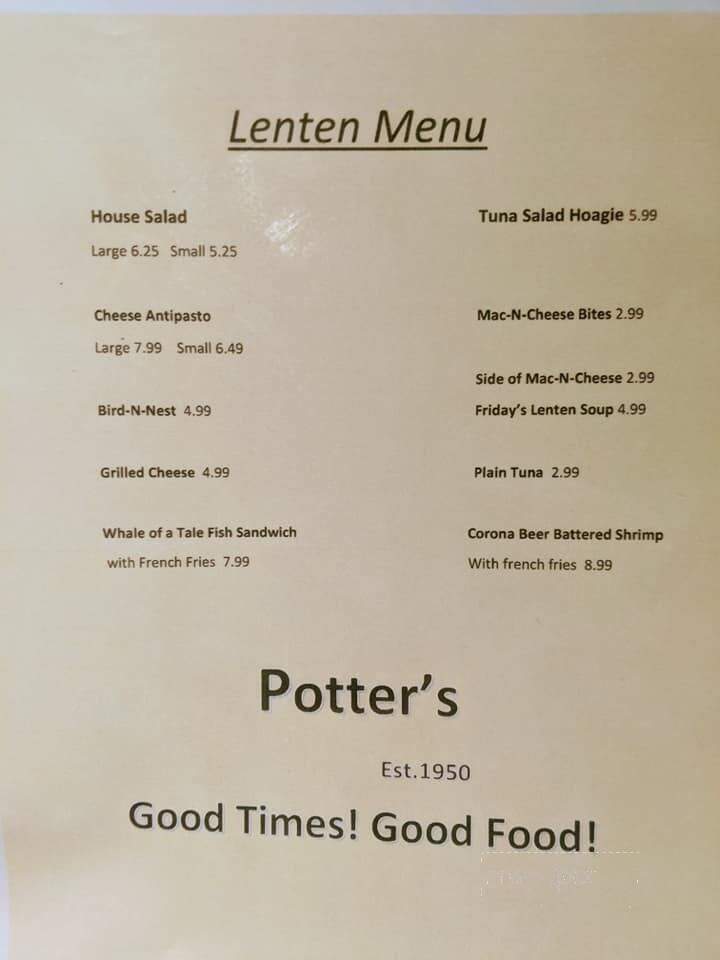 Lenten Menu
House Salad
Large 6.25 Small 5.25
Cheese Antipasto
Large 7.99 Small 6.49
Bird-N-Nest 4.99
Grilled Cheese 4.99
Whale of a Tale Fish Sandwich
with French Fries 7.99
Tuna Salad Hoagie 5.99
Mac-N-Cheese Bites 2.99
Side of Mac-N-Cheese 2.99
Friday's Lenten Soup 4.99
Plain Tuna 2.99
Corona Beer Battered Shrimp
With french fries 8.99
Potter's
Est.1950
Good Times! Good Food!